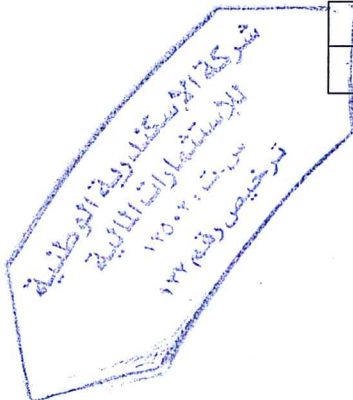 شركة الإسكندرية الوطنية
للإستثمارات المالية
س.ت : ١٢٥٠٢
ترخيص رقم ١٢٧